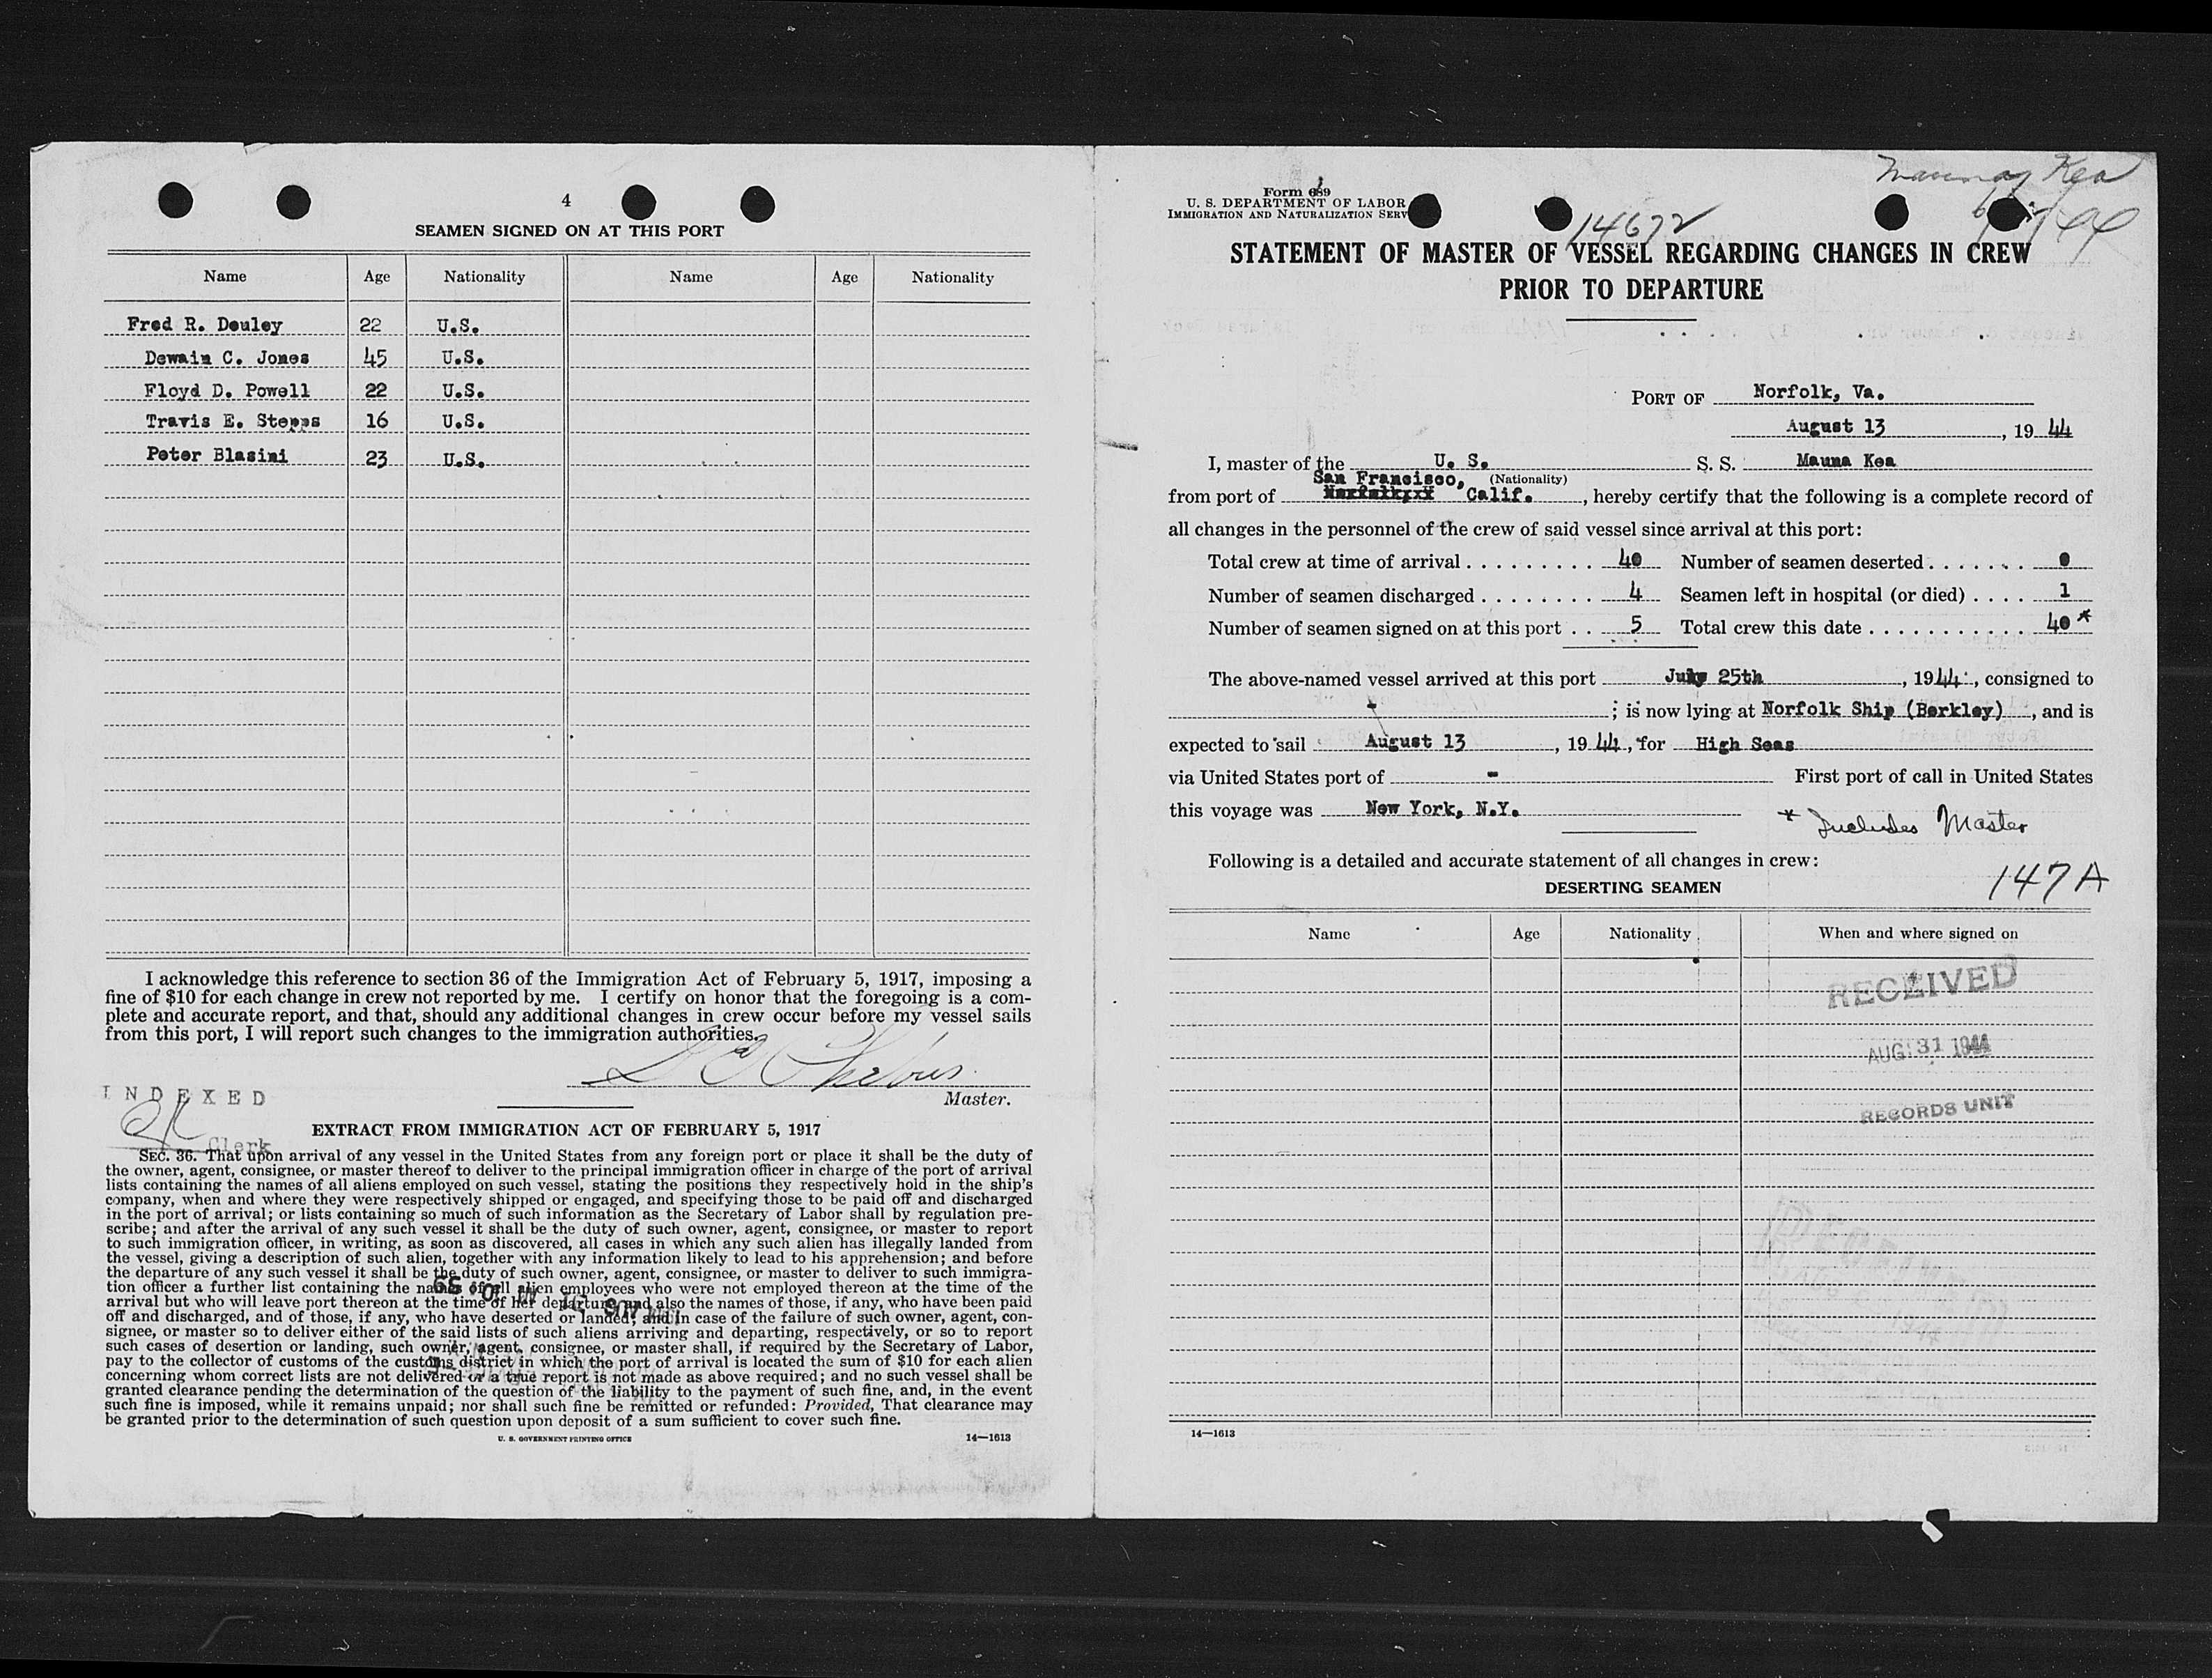 4
SEAMEN SIGNED ON AT THIS PORT
Name Age Nationality Name Age Nationality
Fred R. Deuley 22 U.S.
Dewain C. Jones 45 U.S.
Floyd D. Powell 22 U.S.
Travis E. Stepps 16 U.S.
Peter Blasini 23 U.S.
I acknowledge this reference to section 36 of the Immigration Act of February 5, 1917, imposing a
fine of $10 for each change in crew not reported by me. I certify on honor that the foregoing is a com-
plete and accurate report, and that, should any additional changes in crew occur before my vessel sails
from this port, I will report such changes to the immigration authorities.
Master.
INDEXED
Clerk
EXTRACT FROM IMMIGRATION ACT OF FEBRUARY 5, 1917
SEC. 36. That upon arrival of any vessel in the United States from any foreign port or place it shall be the duty of
the owner, agent, consignee, or master thereof to deliver to the principal immigration officer in charge of the port of arrival
lists containing the names of all aliens employed on such vessel, stating the positions they respectively hold in the ship's
company, when and where they were respectively shipped or engaged, and specifying those to be paid off and discharged
in the port of arrival; or lists containing so much of such information as the Secretary of Labor shall by regulation pre-
scribe; and after the arrival of any such vessel it shall be the duty of such owner, agent, consignee, or master to report
to such immigration officer, in writing, as soon as discovered, all cases in which any such alien has illegally landed from
the vessel, giving a description of such alien, together with any information likely to lead to his apprehension; and before
the departure of any such vessel it shall be the duty of such owner, agent, consignee, or master to deliver to such immigra-
tion officer a further list containing the names of all alien employees who were not employed thereon at the time of the
arrival but who will leave port thereon at the time of her departure, and also the names of those, if any, who have been paid
off and discharged, and of those, if any, who have deserted or landed; and in case of the failure of such owner, agent, con-
signee, or master so to deliver either of the said lists of such aliens arriving and departing, respectively, or so to report
such cases of desertion or landing, such owner, agent, consignee, or master shall, if required by the Secretary of Labor,
pay to the collector of customs of the customs district in which the port of arrival is located the sum of $10 for each alien
concerning whom correct lists are not delivered or a true report is not made as above required; and no such vessel shall be
granted clearance pending the determination of the question of the liability to the payment of such fine, and, in the event
such fine is imposed, while it remains unpaid; nor shall such fine be remitted or refunded: Provided, That clearance may
be granted prior to the determination of such question upon deposit of a sum sufficient to cover such fine.
U. S. GOVERNMENT PRINTING OFFICE 14—1613
Form 689
U. S. DEPARTMENT OF LABOR
IMMIGRATION AND NATURALIZATION SERV
Kea
14672
STATEMENT OF MASTER OF VESSEL REGARDING CHANGES IN CREW
PRIOR TO DEPARTURE
PORT OF Norfolk, Va.
August 13, 1944
I, master of the U. S. S. S. Mauna Kea
(Nationality)
from port of San Francisco, Calif., hereby certify that the following is a complete record of
all changes in the personnel of the crew of said vessel since arrival at this port:
Total crew at time of arrival 40 Number of seamen deserted 0
Number of seamen discharged 4 Seamen left in hospital (or died) 1
Number of seamen signed on at this port 5 Total crew this date 40 *
The above-named vessel arrived at this port July 25th, 1944, consigned to
-; is now lying at Norfolk Ship (Berkley), and is
expected to sail August 13, 1944, for High Seas
via United States port of - First port of call in United States
this voyage was New York, N.Y.
* Includes Master
Following is a detailed and accurate statement of all changes in crew:
147A
DESERTING SEAMEN
Name Age Nationality When and where signed on
RECEIVED
AUG 31 1944
RECORDS UNIT
14—1613